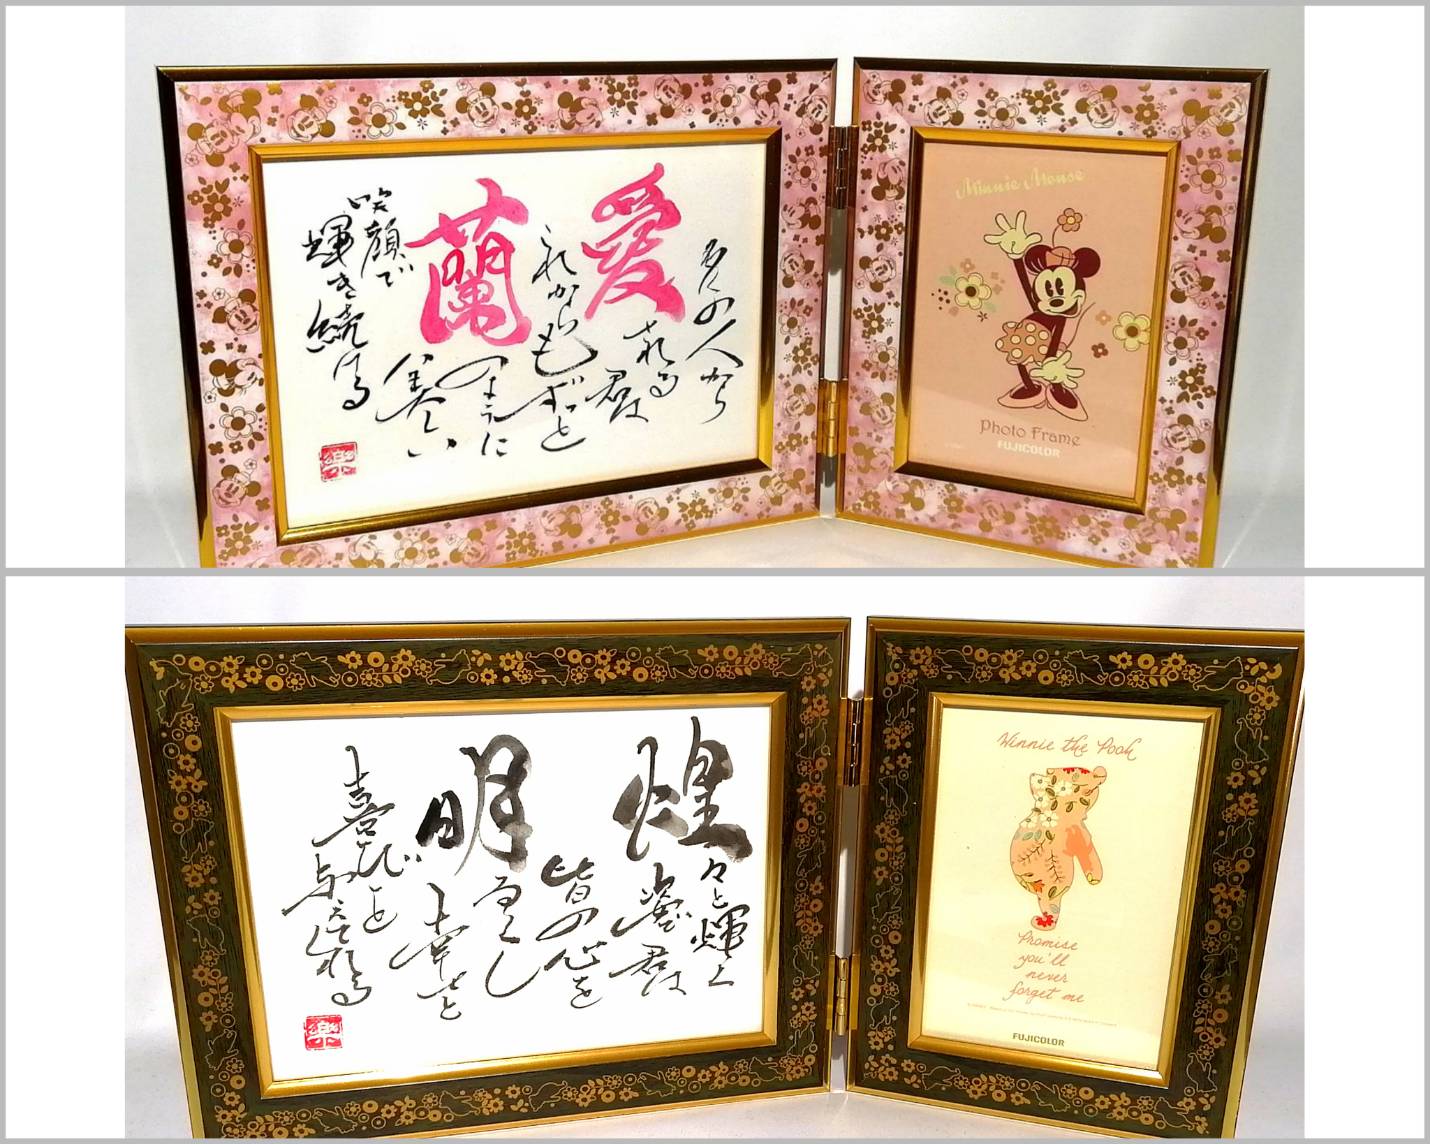 多くの人から
愛される
君は
これからもずっと
蘭のように
美しい
笑顔で
輝き続ける
樂
Minnie Mouse
Photo Frame
FUJICOLOR
煌々と輝く
姿
君は
皆の心を
明るくし
幸せと
喜びを
樂
Winnie the Pooh
Promise
you'll
never
forget me
FUJICOLOR